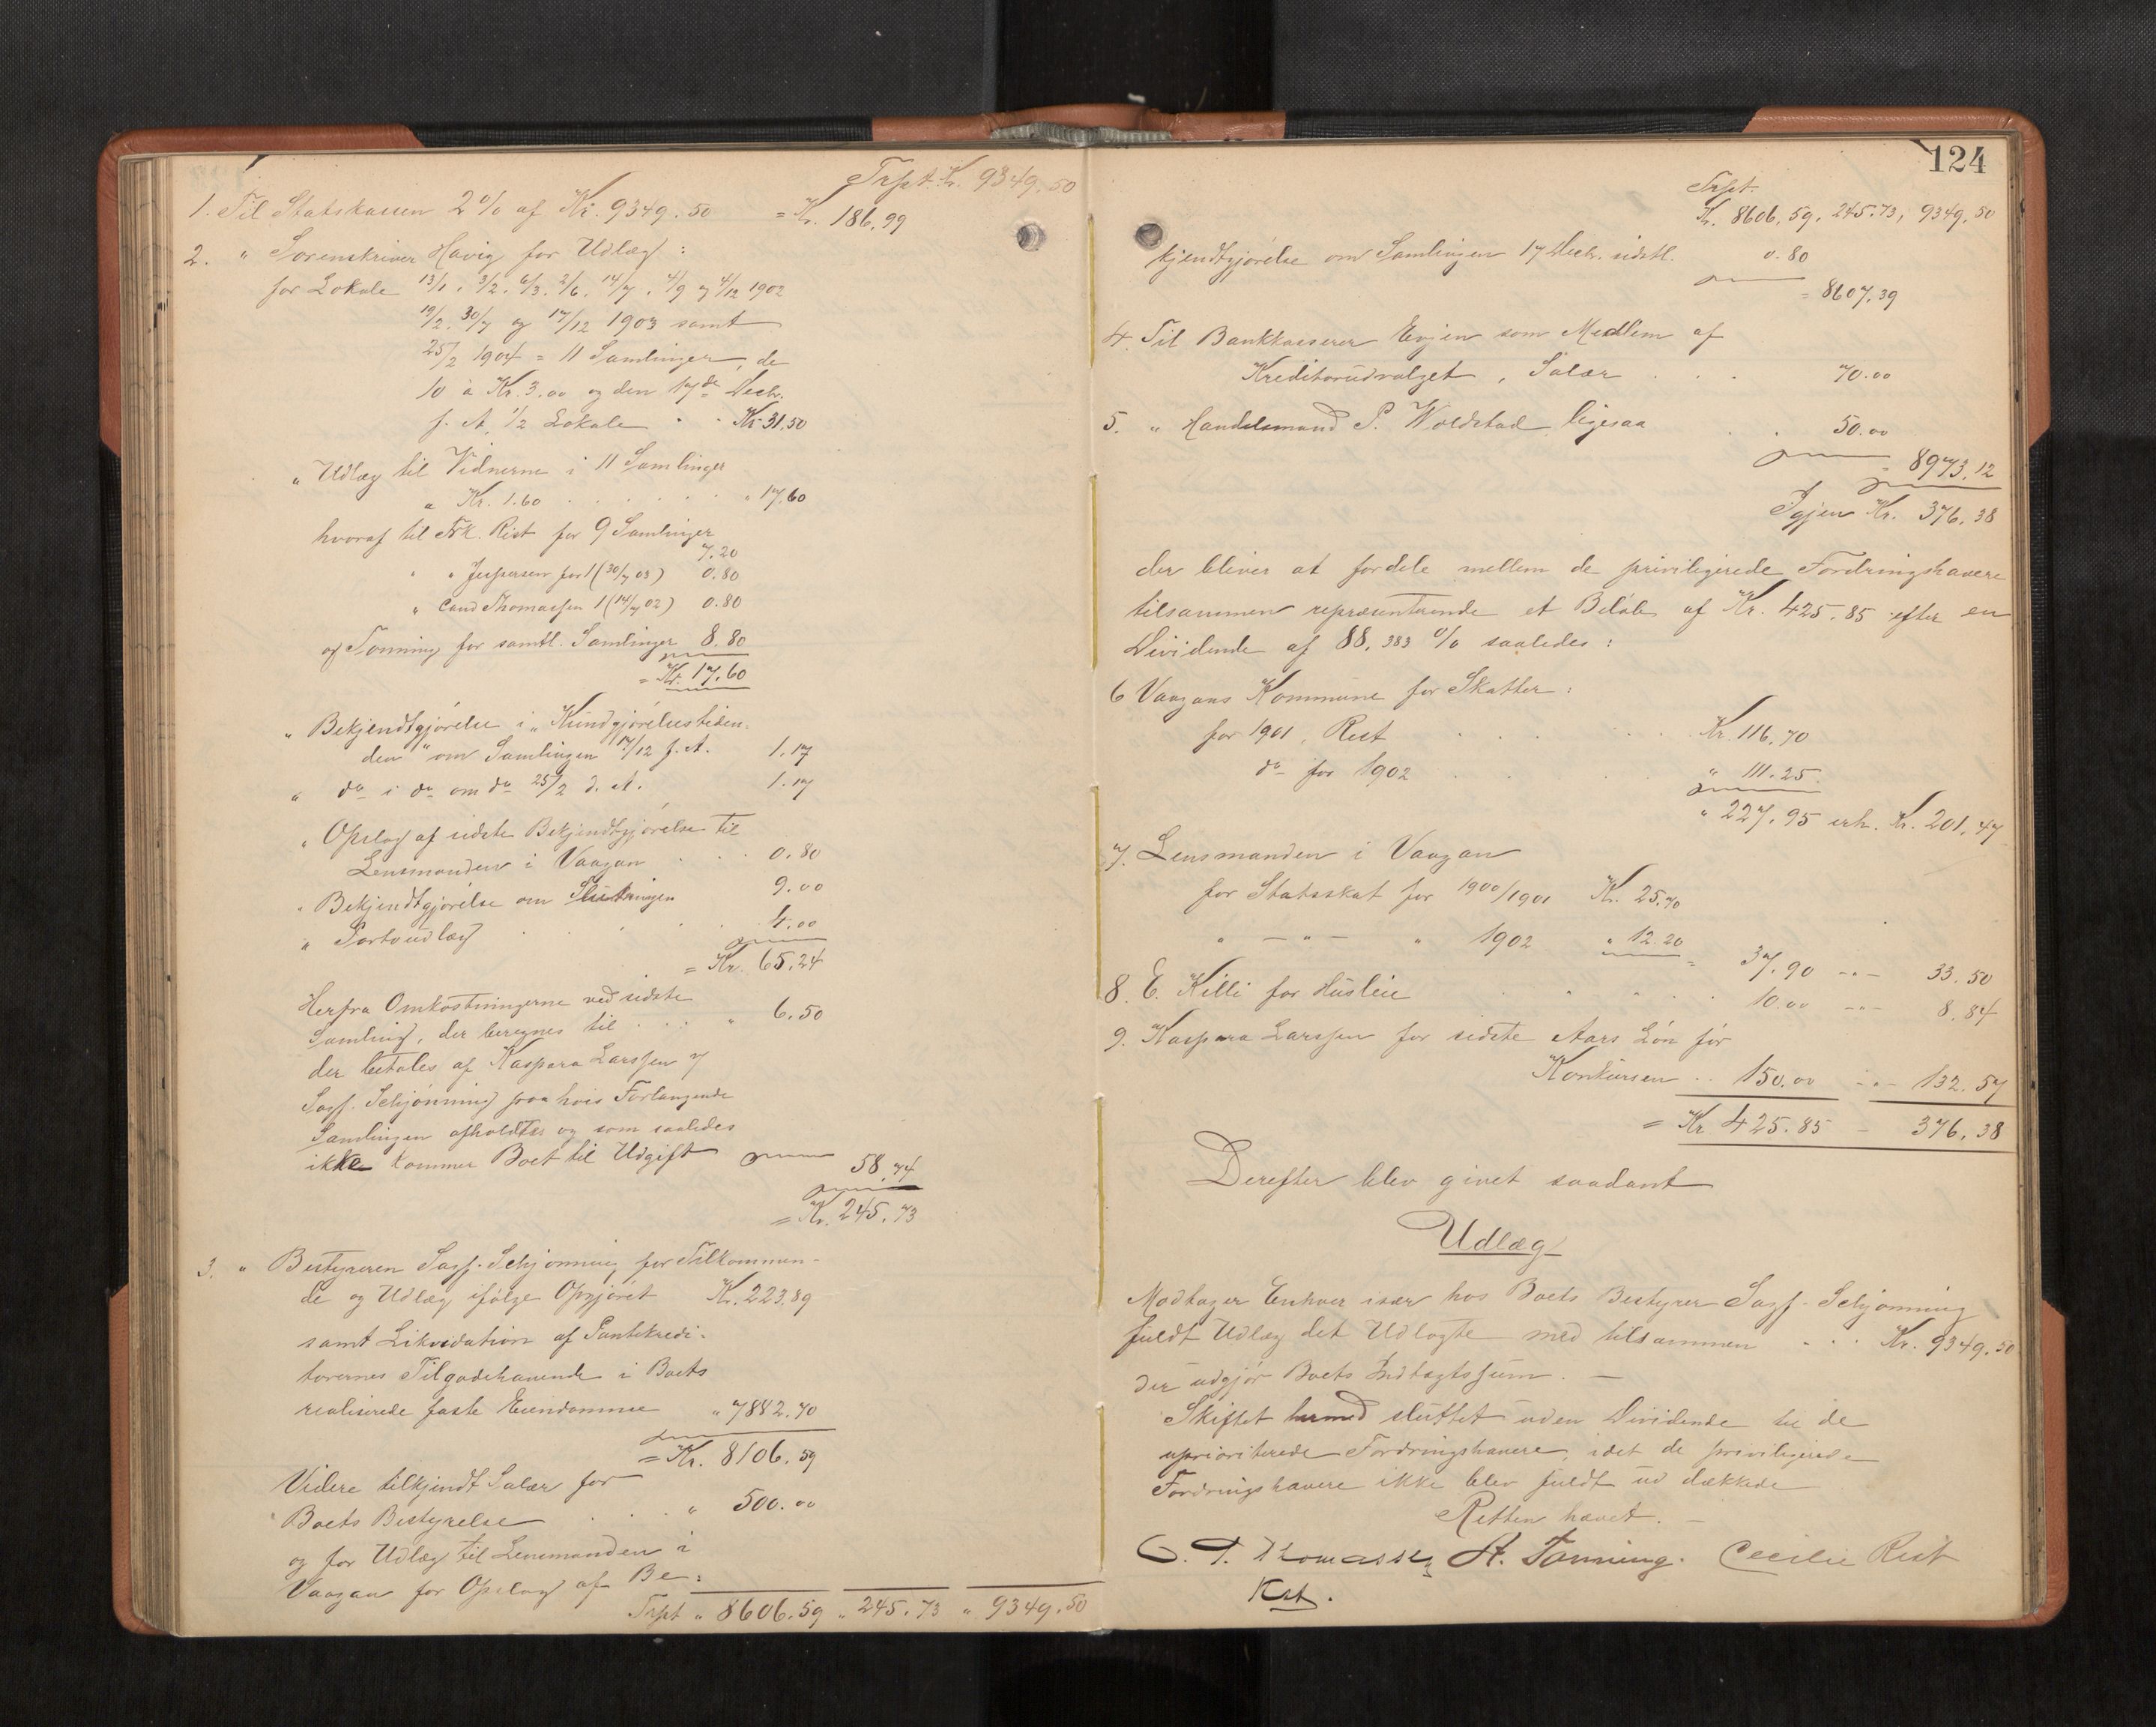 Trpt. Kr. 9349.50
1. Til Statskassen 2% af Kr. 9349.50 = Kr. 186.99
2. " Sorenskriver Havig for Udlæg :
for Lokale 13/1, 3/2, 6/3, 2/6, 14/7, 4/9 og 4/12 1902
19/2, 30/7 og 17/12 1903 samt
25/2 1904 = 11 Samlinger, de
10 à Kr. 3.00 og den 17de Decbr.
f. A. 1/2 Lokale . . Kr. 31.50
" Udlæg til Vidnerne i 11 Samlinger
a Kr. 1.60 . . . . . . " 17.60
hvoraf til Frk. Rist for 9 Samlinger
7.20
" " Jespersen for 1 (30/7 03) 0.80
" Cand Thomassen 1 (14/7 02) 0.80
og Tonning for samtl. Samlinger 8.80
= Kr. 17.60
" Bekjendtgjørelse i "Kundgjørelsestiden-
den" om Samlingen 17/12 f. A. 1.17
" do i do om do 25/2 d. A. 1.17
" Opslag af sidste Bekjendtgjørelse til
Lensmanden i Vaagan . . . 0.80
" Bekjendtgjørelse om Slutningen 9.00
" Portoudlæg . . . . . 4.00
= Kr. 65.24
Herfra Omkostningerne ved sidste
Samling, der beregnes til . . . " 6.50
der betales af Kaspara Larssen og
Sagf. Schjønning paa hvis Forlangende
Samlingen afholdtes og som saaledes
ikke kommer Boet til Udgift 58.74
= Kr. 245.73
3. " Bestyreren Sagf. Schjønning for Tilkommen-
de og Udlæg ifølge Opgjøret Kr. 223.89
samt Likvidation af Pantekredi-
torernes Tilgodehavende i Boets
realiserede faste Eiendomme " 7882.70
= Kr. 8106.59
Videre tilkjendt Salær for
Boets Bestyrelse . . . " 500.00
og for Udlæg til Lensmanden i
Vaagan for Opslag af Be:
Trpt " 8606.59 " 245.73 " 9349.50
124
Trpt.
Kr. 8606.59, 245.73, 9349.50
kjendtgjørelse om Samlingen 17 Decbr. sidstl. 0.80
= 8607.39
4. Til Bankkasserer Evjen som Medlem af
Kreditorudvalget, Salær . . . 70.00
5. " Handelsmand P. Woldstad ligesaa . . 50.00
" 8973.12
Igjen Kr. 376.38
der bliver at fordele mellem de priviligerede Fordringshavere
tilsammen repræsenterende et Beløb af Kr. 425.85 efter en
Dividende af 88.383 % saaledes :
6 Vaagans Kommune for Skatter :
for 1901, Rest . . . . . Kr. 116.70
do for 1902 . . . . " 111.25
" 227.95 erh. Kr. 201.47
7. Lensmanden i Vaagan
for Statsskat for 1900/1901 Kr. 25.70
" - " - " 1902 " 12.20 = 37.90 - " - 33.50
8. E. Killi for Husleie . . . . 10.00 - " - 8.84
9. Kaspara Larssen for sidste Aars Løn før
Konkursen . . 150.00 - " - 132.57
= Kr 425.85 - 376.38
Derefter blev givet saadant
Udlæg
Modtager Enhver især hos Boets Bestyrer Sagf. Schjønning
fuldt Udlæg det Udlagte med tilsammen . . . Kr. 9349.50
der udgjør Boets Indtægtssum. —
Skiftet hermed sluttet uden Dividende til de
uprioriterede Fordringshavere, idet de priviligerede
Fordringshavere ikke blev fuldt ud dækkede
Retten hævet. —
C. T. Thomassen A. Tonning. Cecilie Rist
Kst.